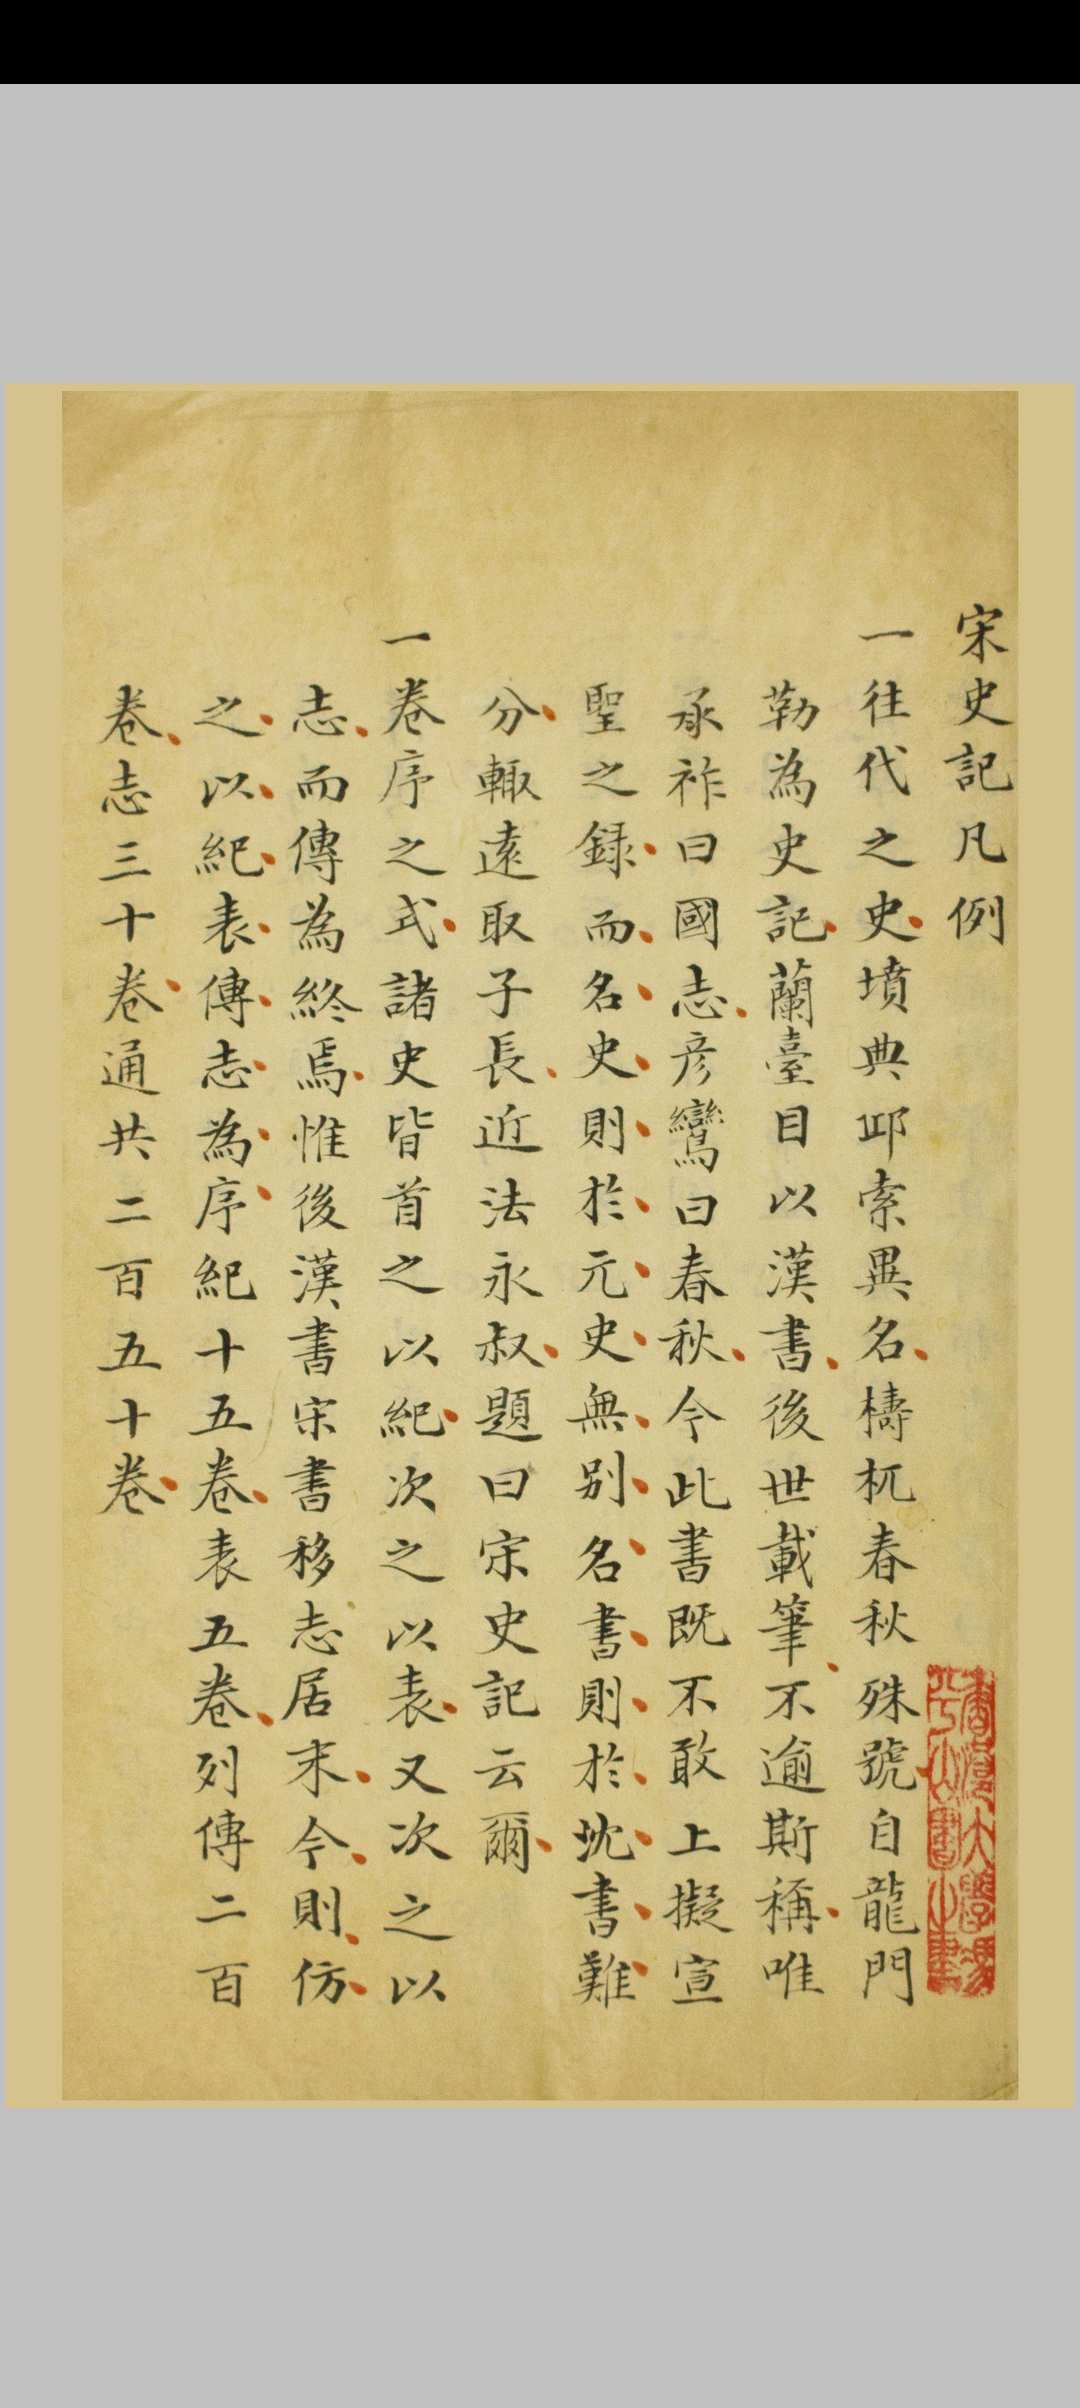 宋史記凡例
一往代之史墳典邱索異名檮杌春秋殊號自龍門
勒為史記蘭臺目以漢書後世載筆不逾斯稱唯
承祚曰國志彦鸞曰春秋今此書既不敢上擬宣
聖之録而名史則於元史無别名書則於沈書難
分輙遠取子長近法永叔題曰宋史記云爾
一卷序之式諸史皆首之以紀次之以表又次之以
志而傳為終焉惟後漢書宋書移志居末今則仿
之以紀表傳志為序紀十五卷表五卷列傳二百
卷志三十卷通共二百五十卷